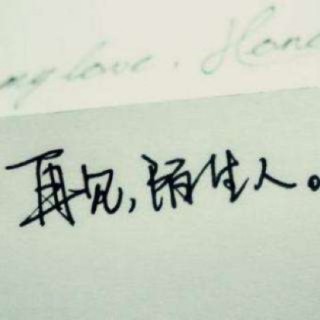 my love. Hone
再见，陌生人。